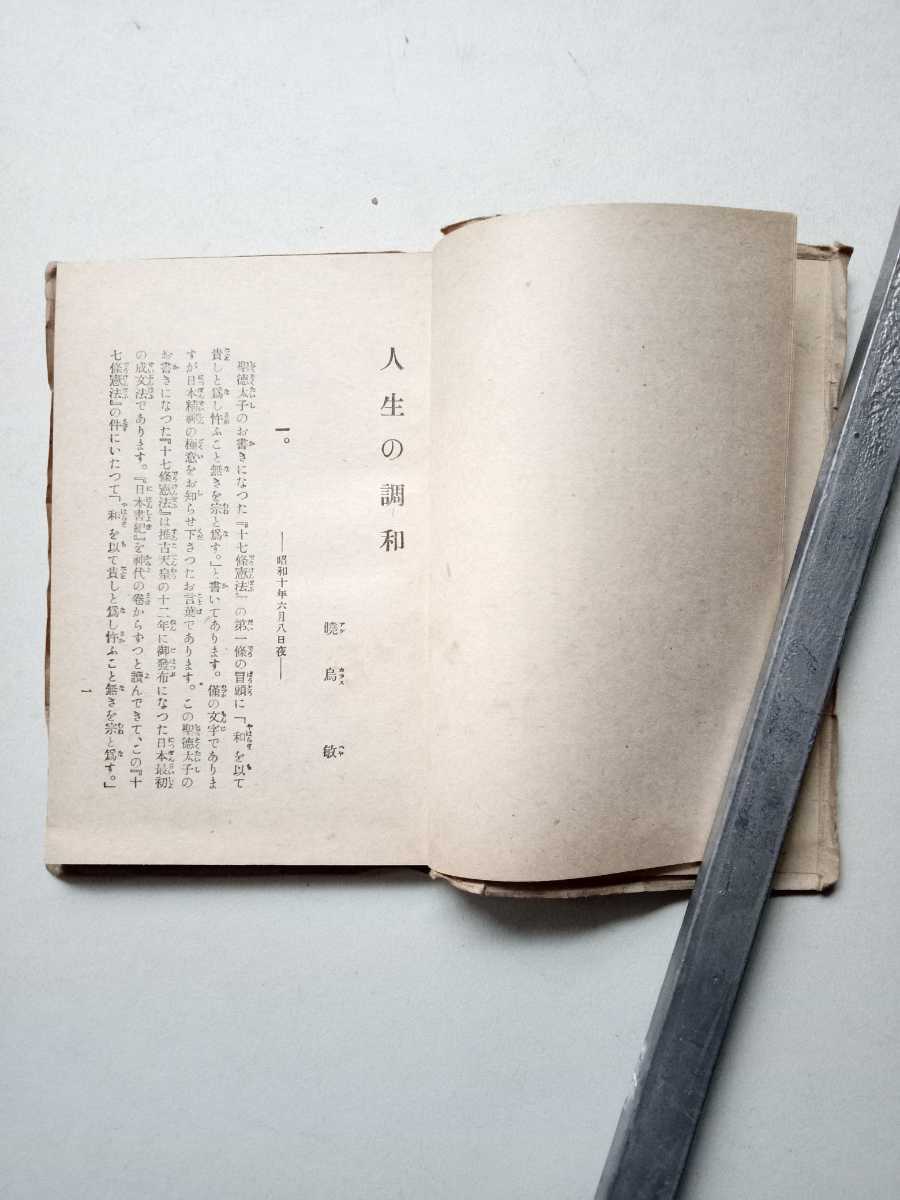 人生の調和
曉烏敏
──昭和十年六月八日夜──
一。
聖德太子のお書きになつた『十七條憲法』の第一條の冒頭に「和を以て
貴しと爲し忤ふこと無きを宗と爲す。」と書いてあります。僅の文字でありま
すが日本精神の極意をお知らせ下さつたお言葉であります。この聖德太子の
お書きになつた『十七條憲法』は推古天皇の十二年に御發布になつた日本最初
の成文法であります。『日本書紀』を神代の卷からずつと讀んできて、この『十
七條憲法』の件にいたつて「和を以て貴しと爲し忤ふこと無きを宗と爲す。」
一